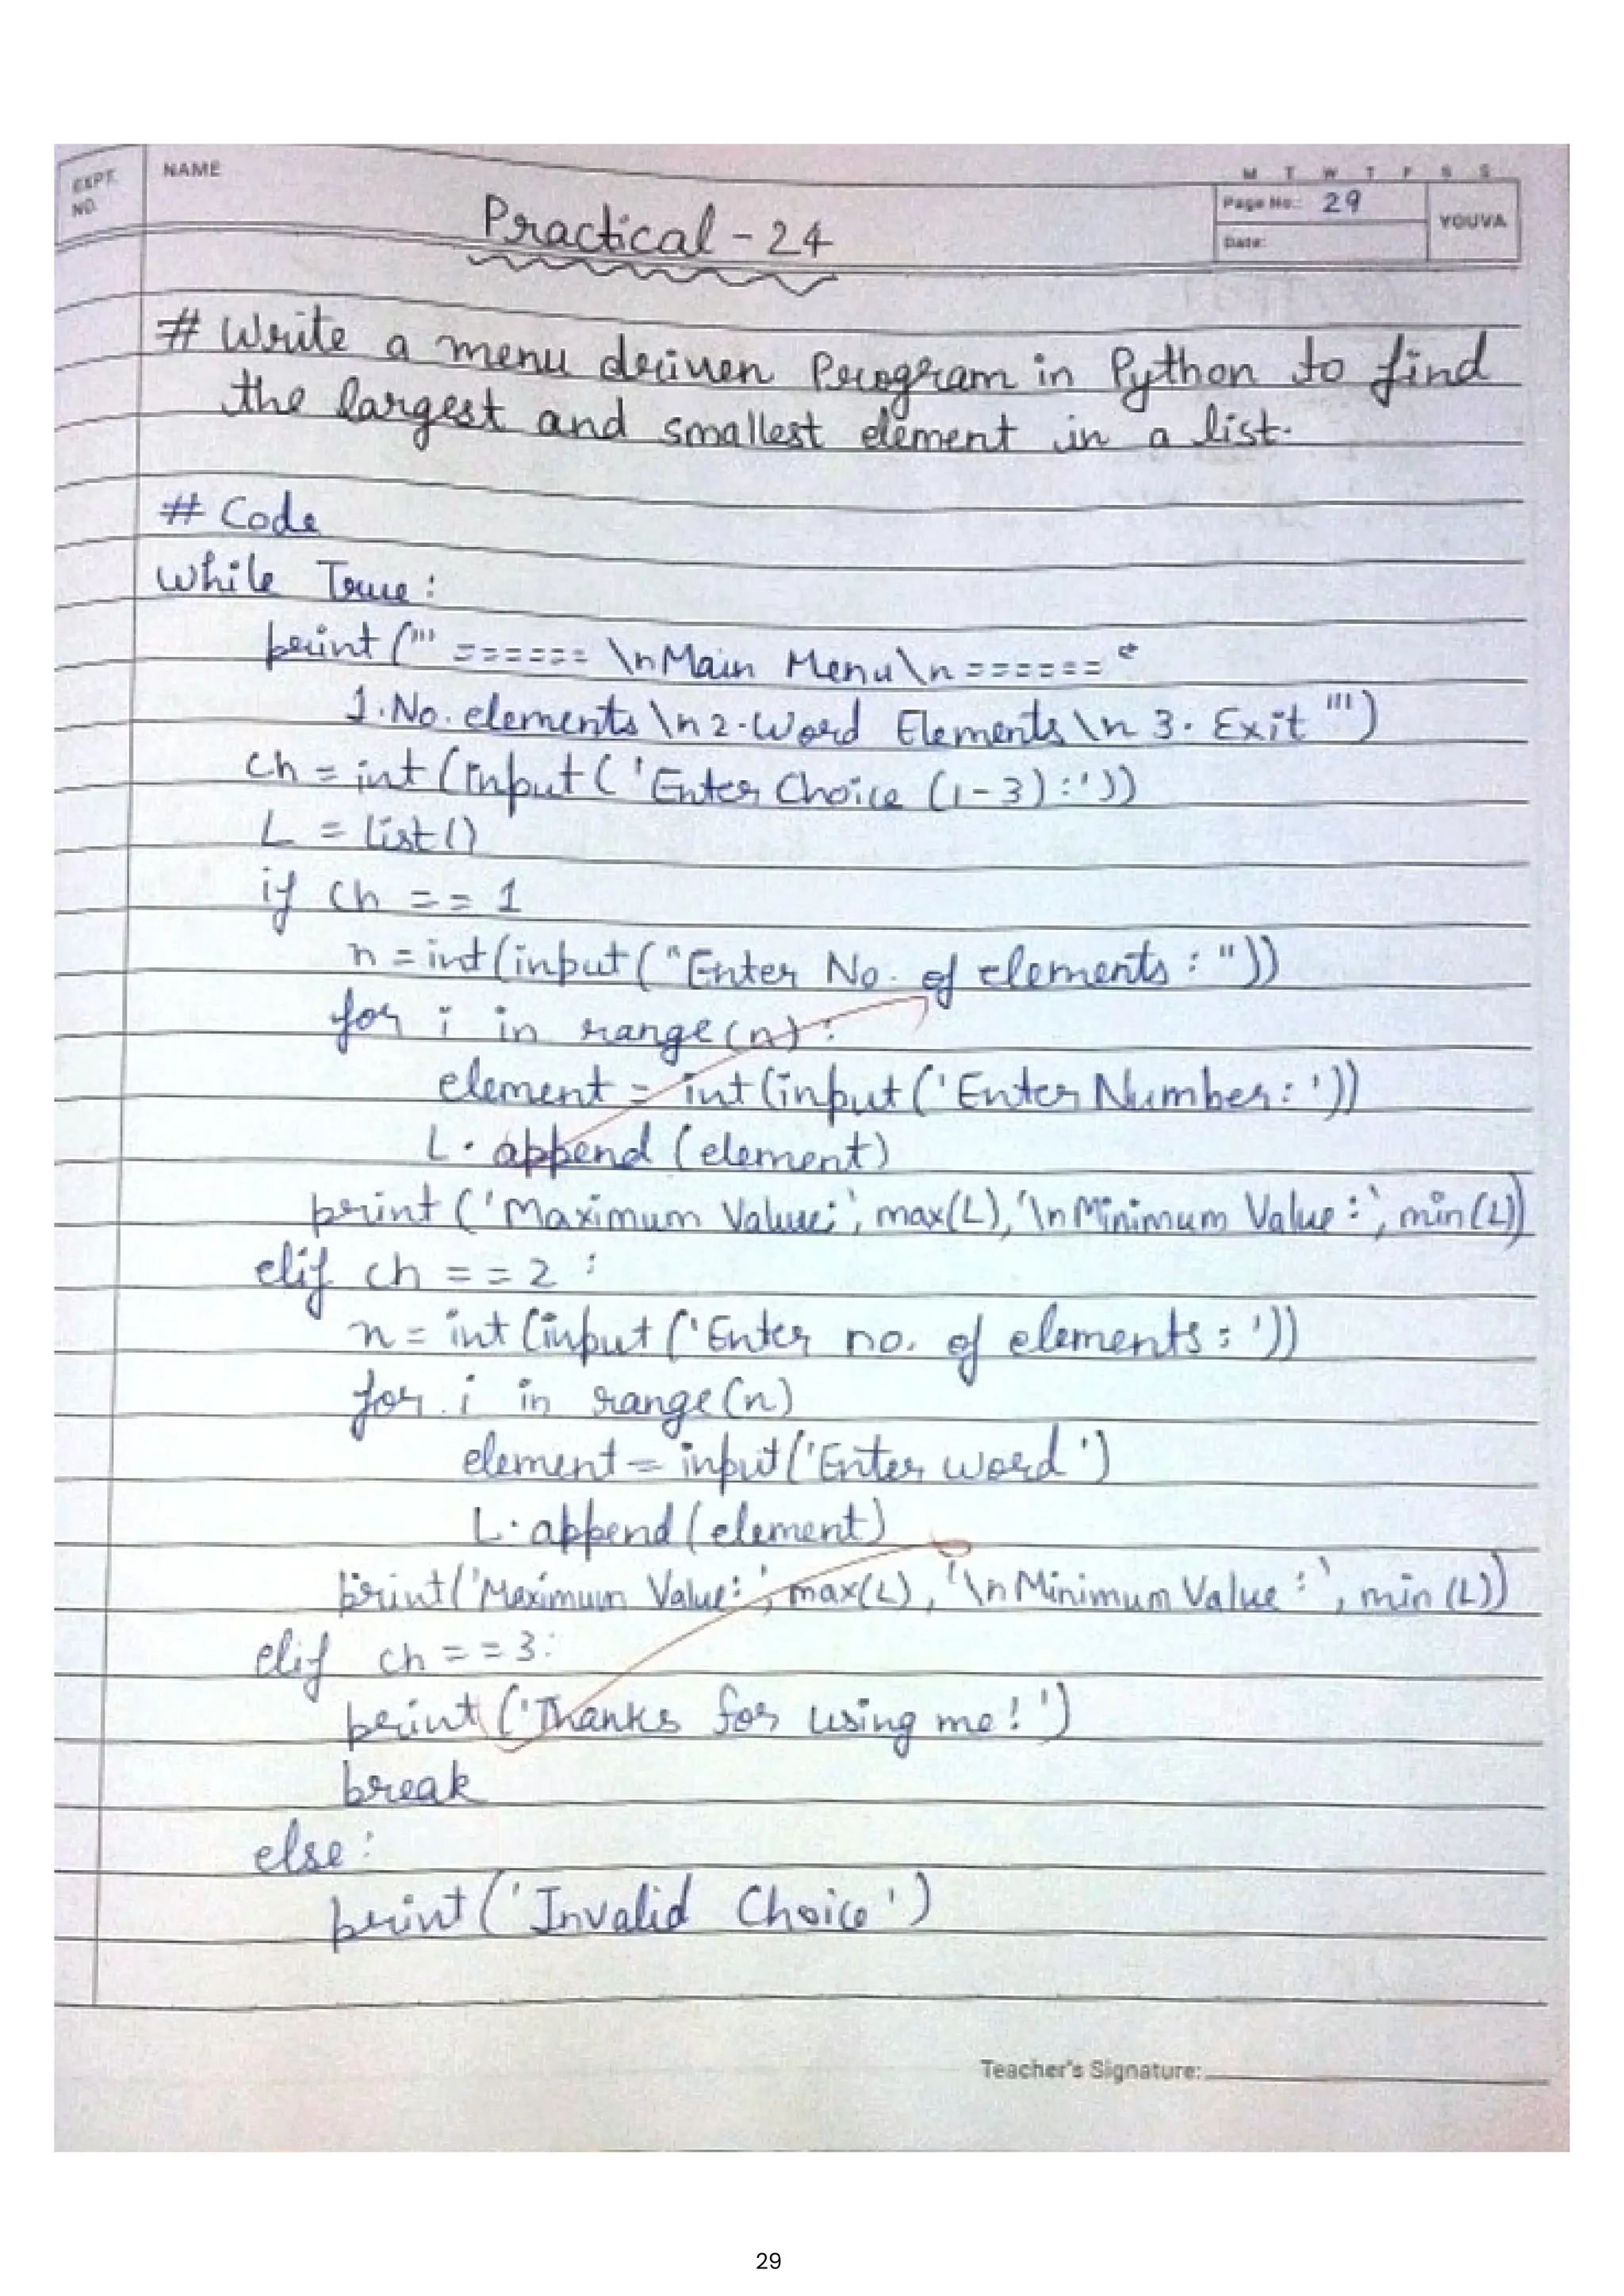 EXPT. NO.
NAME
M T W T F S S
Page No.: 29
YOUVA
Date:
Practical - 24
# Write a menu driven Program in Python to find
the largest and smallest element in a list.
# Code
While True:
print (''' ====== \nMain Menu\n======
1.No. elements \n 2.Word Elements \n 3. Exit ''')
Ch = int (input ( 'Enter Choice (1-3) :' ))
L = list ()
if Ch == 1
n = int (input ( "Enter No. of elements : " ))
for i in range (n) :
element = int (input (' Enter Number: '))
L . append ( element )
print ( 'Maximum Value:', max(L), '\n Minimum Value :', min (L))
elif ch == 2 :
n = int (input ( 'Enter no. of elements : '))
for i in range (n)
element = input ('Enter word ')
L . append ( element )
print( 'Maximum Value: ', max(L) , '\n Minimum Value : ' , min (L))
elif ch == 3:
print ('Thanks for using me! ')
break
else :
print ( ' Invalid Choice ' )
Teacher's Signature:
29